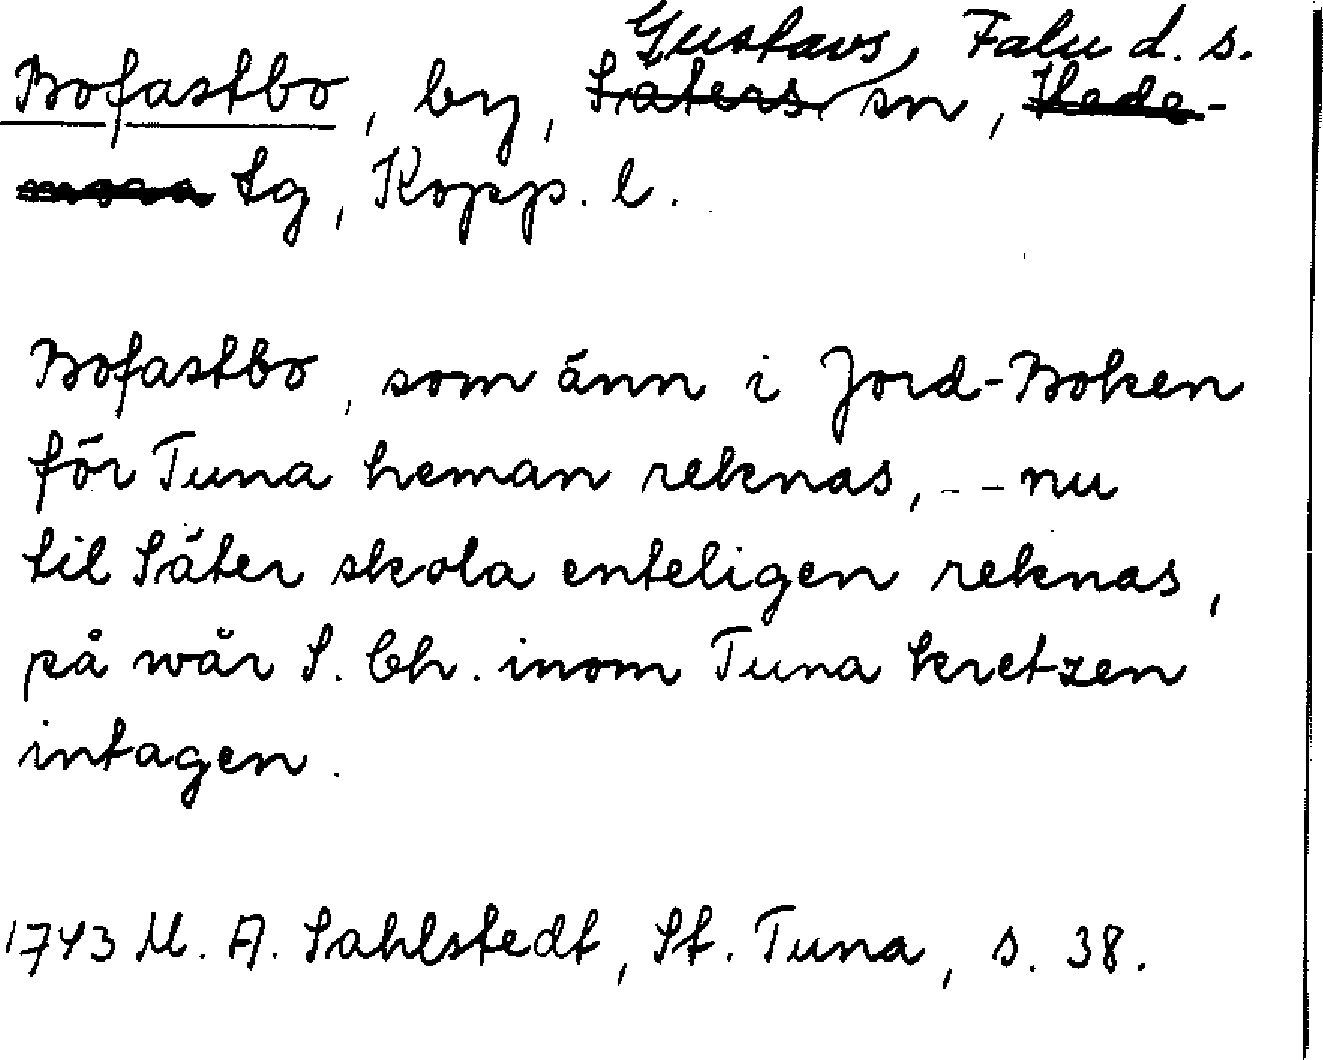 Gustavs, Falu d. s.
Bofastbo, by, Säters sn, Hede-
mora tg, Kopp. l.
Bofastbo, som änn i Jord-Boken
för Tuna heman reknas, -- nu
til Säter skola enteligen reknas,
på wår S. Ch. inom Tuna kretzen
intagen.
1743 M. A. Sahlstedt, St. Tuna, s. 38.